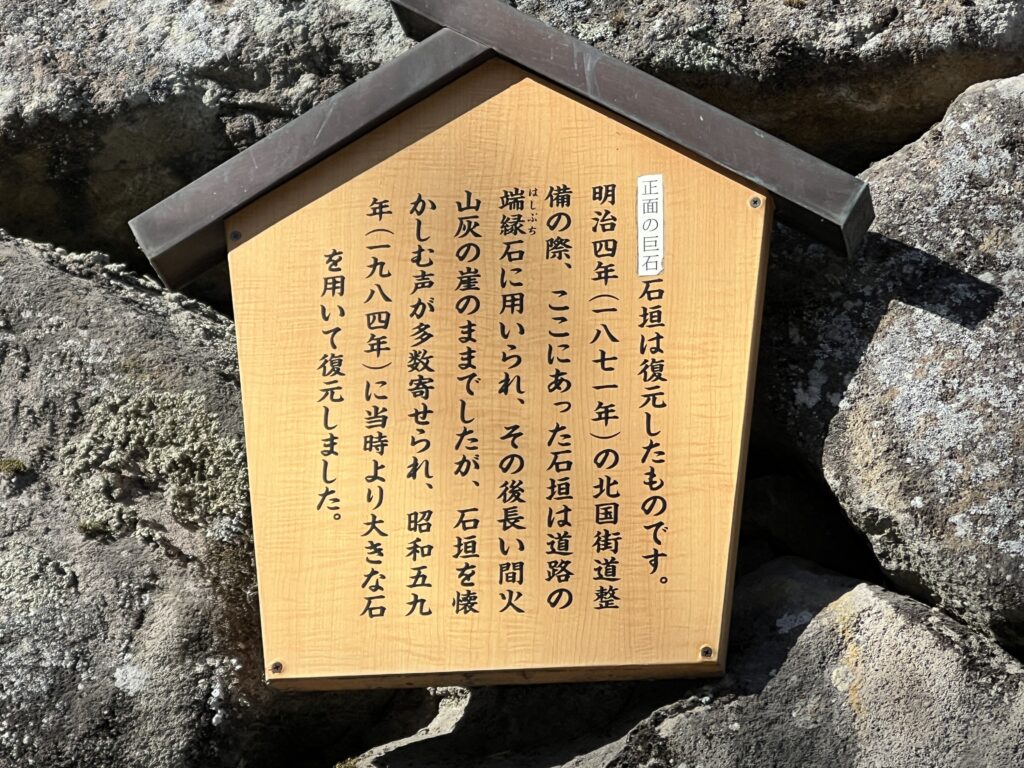 正面の巨石石垣は復元したものです。
明治四年(一八七一年)の北国街道整
備の際、ここにあった石垣は道路の
端緑石に用いられ、その後長い間火
はしぶち
山灰の崖のままでしたが、石垣を懐
かしむ声が多数寄せられ、昭和五九
年(一九八四年)に当時より大きな石
を用いて復元しました。